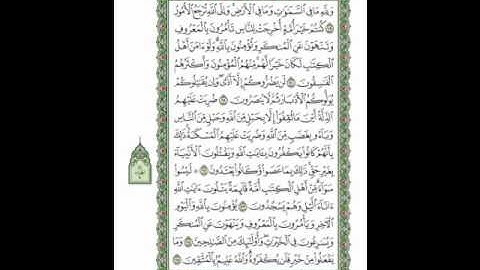 وَلِلَّهِ مَا فِي السَّمَاوَاتِ وَمَا فِي الْأَرْضِ وَإِلَى اللَّهِ تُرْجَعُ الْأُمُورُ
۝١٠٩ كُنتُمْ خَيْرَ أُمَّةٍ أُخْرِجَتْ لِلنَّاسِ تَأْمُرُونَ بِالْمَعْرُوفِ
وَتَنْهَوْنَ عَنِ الْمُنكَرِ وَتُؤْمِنُونَ بِاللَّهِ وَلَوْ ءَامَنَ أَهْلُ
الْكِتَابِ لَكَانَ خَيْرًا لَّهُم مِّنْهُمُ الْمُؤْمِنُونَ وَأَكْثَرُهُمُ
الْفَاسِقُونَ ۝١١٠ لَن يَضُرُّوكُمْ إِلَّا أَذًى وَإِن يُقَاتِلُوكُمْ
يُوَلُّوكُمُ الْأَدْبَارَ ثُمَّ لَا يُنصَرُونَ ۝١١١ ضُرِبَتْ عَلَيْهِمُ
الذِّلَّةُ أَيْنَ مَا ثُقِفُوا إِلَّا بِحَبْلٍ مِّنَ اللَّهِ وَحَبْلٍ مِّنَ النَّاسِ
وَبَاءُو بِغَضَبٍ مِّنَ اللَّهِ وَضُرِبَتْ عَلَيْهِمُ الْمَسْكَنَةُ ذَٰلِكَ
بِأَنَّهُمْ كَانُوا يَكْفُرُونَ بِآيَاتِ اللَّهِ وَيَقْتُلُونَ الْأَنبِيَاءَ
بِغَيْرِ حَقٍّ ذَٰلِكَ بِمَا عَصَوا وَّكَانُوا يَعْتَدُونَ ۝١١٢ لَيْسُوا
سَوَاءً مِّنْ أَهْلِ الْكِتَابِ أُمَّةٌ قَائِمَةٌ يَتْلُونَ ءَايَاتِ اللَّهِ
ءَانَاءَ اللَّيْلِ وَهُمْ يَسْجُدُونَ ۝١١٣ يُؤْمِنُونَ بِاللَّهِ وَالْيَوْمِ
الْآخِرِ وَيَأْمُرُونَ بِالْمَعْرُوفِ وَيَنْهَوْنَ عَنِ الْمُنكَرِ
وَيُسَارِعُونَ فِي الْخَيْرَاتِ وَأُولَٰئِكَ مِنَ الصَّالِحِينَ ۝١١٤ وَمَا
يَفْعَلُوا مِنْ خَيْرٍ فَلَن يُكْفَرُوهُ وَاللَّهُ عَلِيمٌ بِالْمُتَّقِينَ ۝١١٥